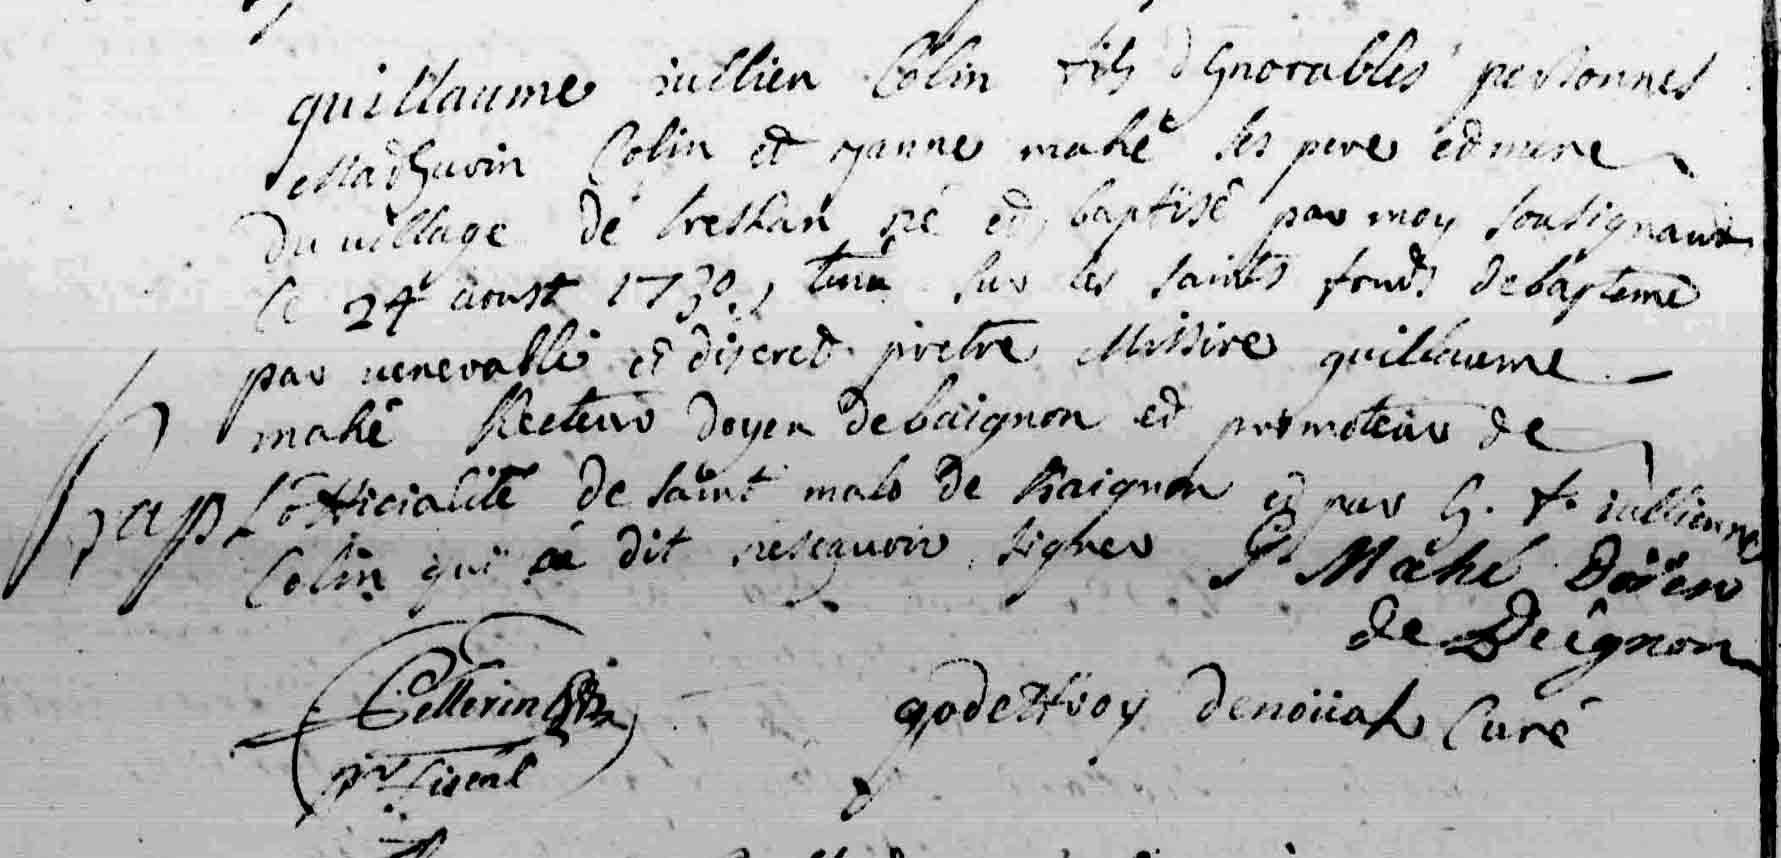 guillaume jullien Colin fils d'honorables personnes
Mathurin Colin et janne mahé ses pere et mere
du village de né et baptisé par moy sousignant
le 24 aoust 1730, tenu sur les saints fonds de bapteme
par venerable et discret pretre Missire guillaume
mahé Recteur doyen de baignon et promoteur de
bap L'officialité de saint malo de Baignon et par h. f. jullienne
Colin qui dit ne sçavoir signer G Mahé Doïen
de Beignon
Pellerin
pr fiscal
godeffroy denoüal Curé